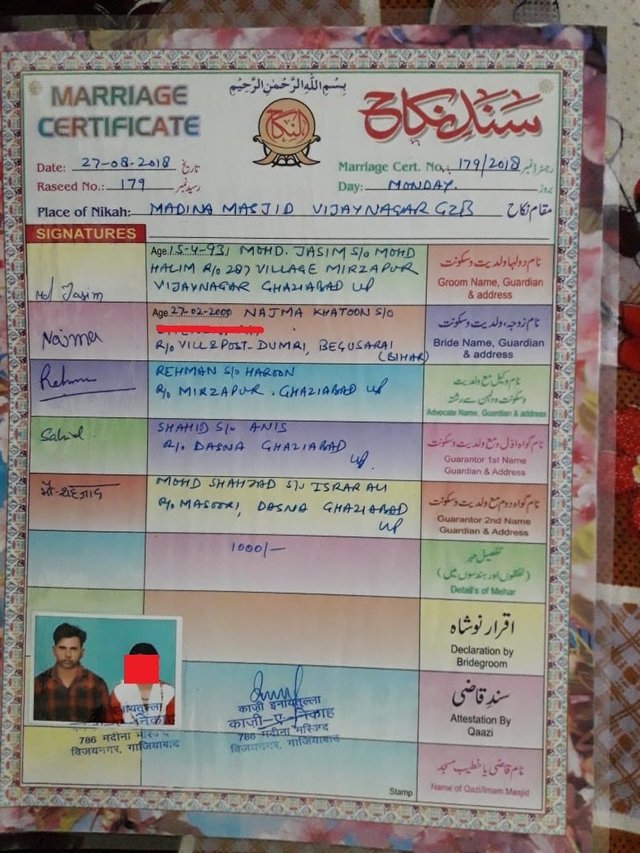 بِسْمِ اللّٰهِ الرَّحْمٰنِ الرَّحِيْمِ
MARRIAGE
CERTIFICATE
النکاح
سَندِ نِکاح
Date: 27-08-2018 تاریخ
Marriage Cert. No.: 179/2018 رجسٹرڈ نمبر
Raseed No.: 179 رسید نمبر
Day: MONDAY. بروز
Place of Nikah: MADINA MASJID VIJAYNAGAR GZB مقام نکاح
SIGNATURES
Age 15-4-93, MOHD. JASIM S/o MOHD
HALIM R/o 287 VILLAGE MIRZAPUR
VIJAYNAGAR GHAZIABAD UP
Md Jasim
نام دولہا ولدیت و سکونت
Groom Name, Guardian
& address
Age 27-02-2000 NAJMA KHATOON S/o
R/o VILL & POST-DUMRI, BEGUSARAI
(BIHAR)
Najma
نام زوجہ، ولدیت و سکونت
Bride Name, Guardian
& address
REHMAN S/o HAROON
R/o MIRZAPUR. GHAZIABAD UP
Rehman
نام وکیل مع ولدیت
وسکونت و دلہن سے رشتہ
Advocate Name, Guardian & address
SHAHID S/o ANIS
R/o DASNA GHAZIABAD
UP.
نام گواہ اوّل مع ولدیت و سکونت
Guarantor 1st Name
Guardian & Address
MOHD SHAHZAD S/o ISRAR ALI
R/o MASOORI, DASNA GHAZIABAD
UP
मौ-शहजाद
نام گواہ دوم مع ولدیت و سکونت
Guarantor 2nd Name
Guardian & Address
1000/-
تفصیل مہر
(لفظوں اور ہندسوں میں)
Detail's of Mehar
اقرار نوشاہ
Declaration by
Bridegroom
काज़ी इनायतुल्ला
काजी-ए-निकाह
786 मदीना मस्जिद
विजयनगर, गाजियाबाद
इनायतुल्ला
निकाह
786 मदीना मस्जिद
विजयनगर, गाजियाबाद
سندِ قاضی
Attestation By
Qaazi
Stamp
نام قاضی یا خطیب مسجد
Name of Qazi/Imam Masjid